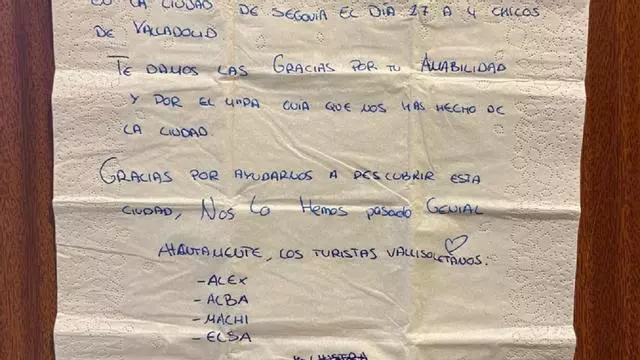 EN LA CIUDAD DE SEGOVIA EL DIA 27 A 4 CHICOS
DE VALLADOLID
TE DAMOS LAS GRACIAS POR TU AMABILIDAD
Y POR EL GUIA QUE NOS HAS HECHO DE
LA CIUDAD.
GRACIAS POR AYUDARNOS A DESCUBRIR ESTA
CIUDAD, NOS LO HEMOS PASADO GENIAL
ATENTAMENTE, LOS TURISTAS VALLISOLETANOS.
- ALEX
- ALBA
- MACHI
- ELSA